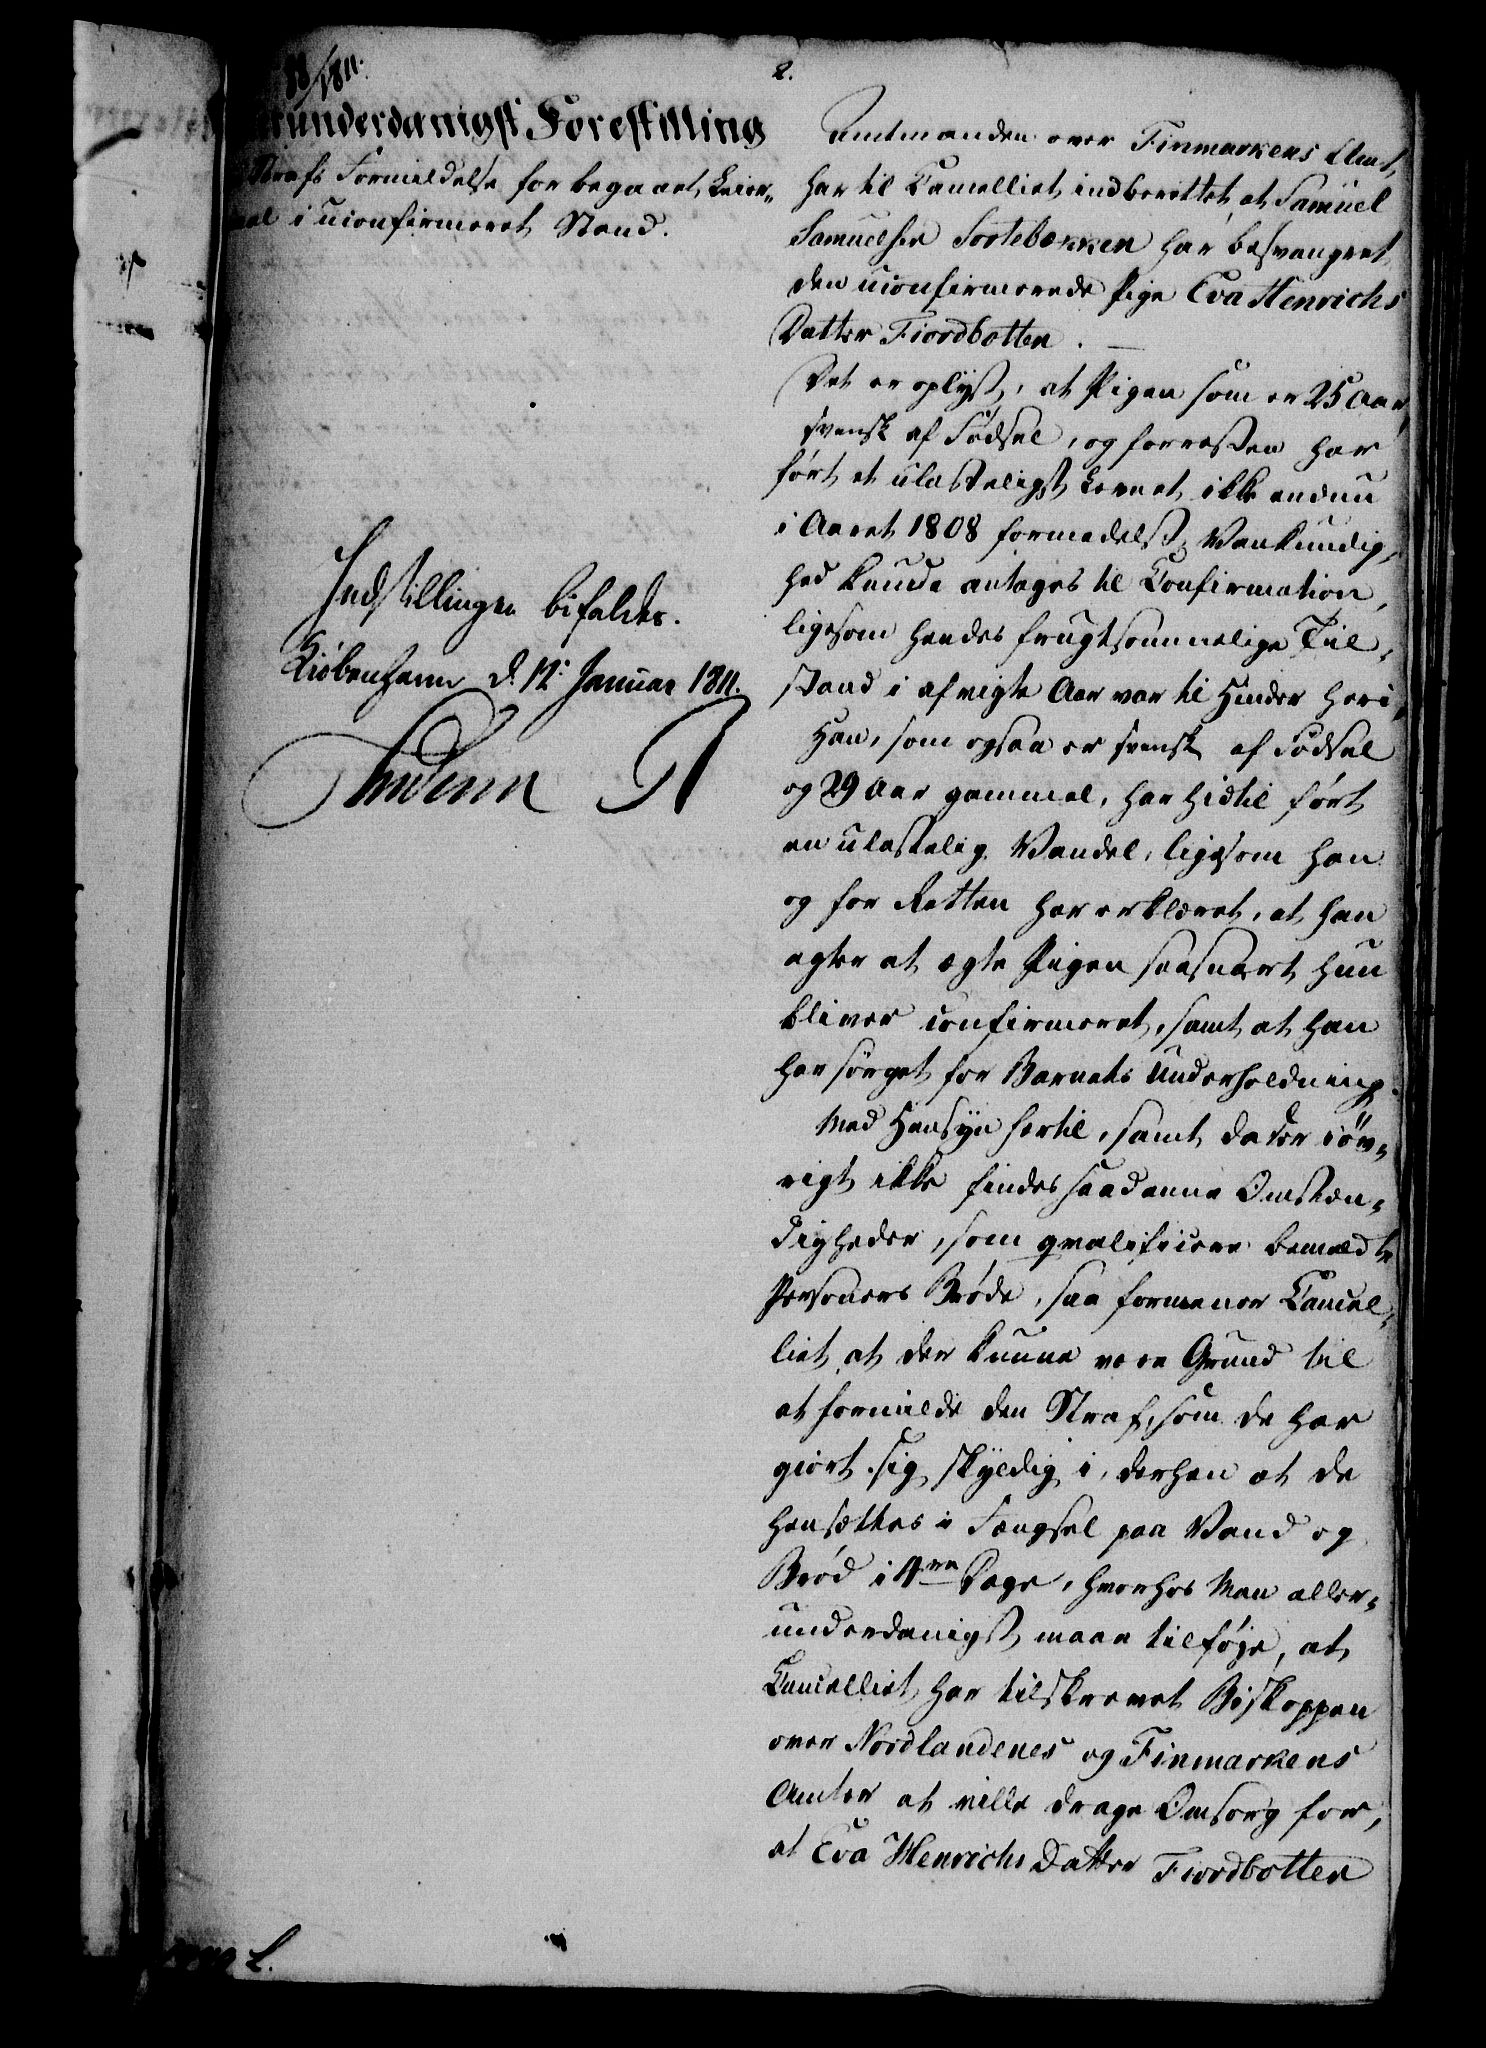 2.
18/1811.
underdanigst Forestilling
Strafs Formildelse for begaaet Leier-
maal i uconfirmeret Stand.
Indstillingen bifaldes.
Kiøbenhavn d. 12. Januar 1811.
Frederik R
Amtmanden over Finmarkens Amt,
har til Cancelliet indberettet, at Samuel
Samuelsen Sootebækken har besvangret
den uconfirmerede Pige Eva Henrichs
Datter Fiordbotten. —
Det er oplyst, at Pigen som er 25 Aar,
svensk af Fødsel, og forresten har
ført et ulasteligt Levnet, ikke endnu
i Aaret 1808 formedelst Vankundig-
hed kunde antages til Confirmation,
ligesom hendes frugtsommelige Til-
stand i afvigte Aar var til Hinder heri.
Han, som ogsaa er svensk af Fødsel
og 29 Aar gammel, har hidtil ført
en ulastelig Vandel, ligesom han
og for Retten har erklæret, at han
agter at ægte Pigen saasnart hun
bliver confirmeret, samt at han
har sørget for Barnets Underholdning.
Med Hensyn hertil, samt da der iøv-
rigt ikke findes saadanne Omstæn-
digheder, som qvalificere bemældte
Personers Brøde, saa formener Cancel-
liet, at der kunne være Grund til
at formilde den Straf, som de har
giort sig skyldig i, derhen at de
hensættes i Fængsel paa Vand og
Brød i 4re Dage, hvorhos Man aller-
underdanigst maae tilføje, at
Cancelliet har tilskrevet Biskoppen
over Nordlandenes og Finmarkens
Amter at ville drage Omsorg for,
at Eva Henrichs Datter Fiordbotten
L.